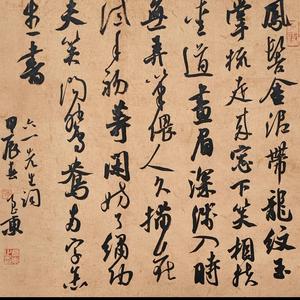 鳳髻金泥帶龍紋玉
掌梳走來窗下笑相扶
愛道畫眉深淺入時
無弄筆偎人久描花
試手初等閑妨了繡功
夫笑問鴛鴦兩字怎
生書
六一先生詞
甲辰春